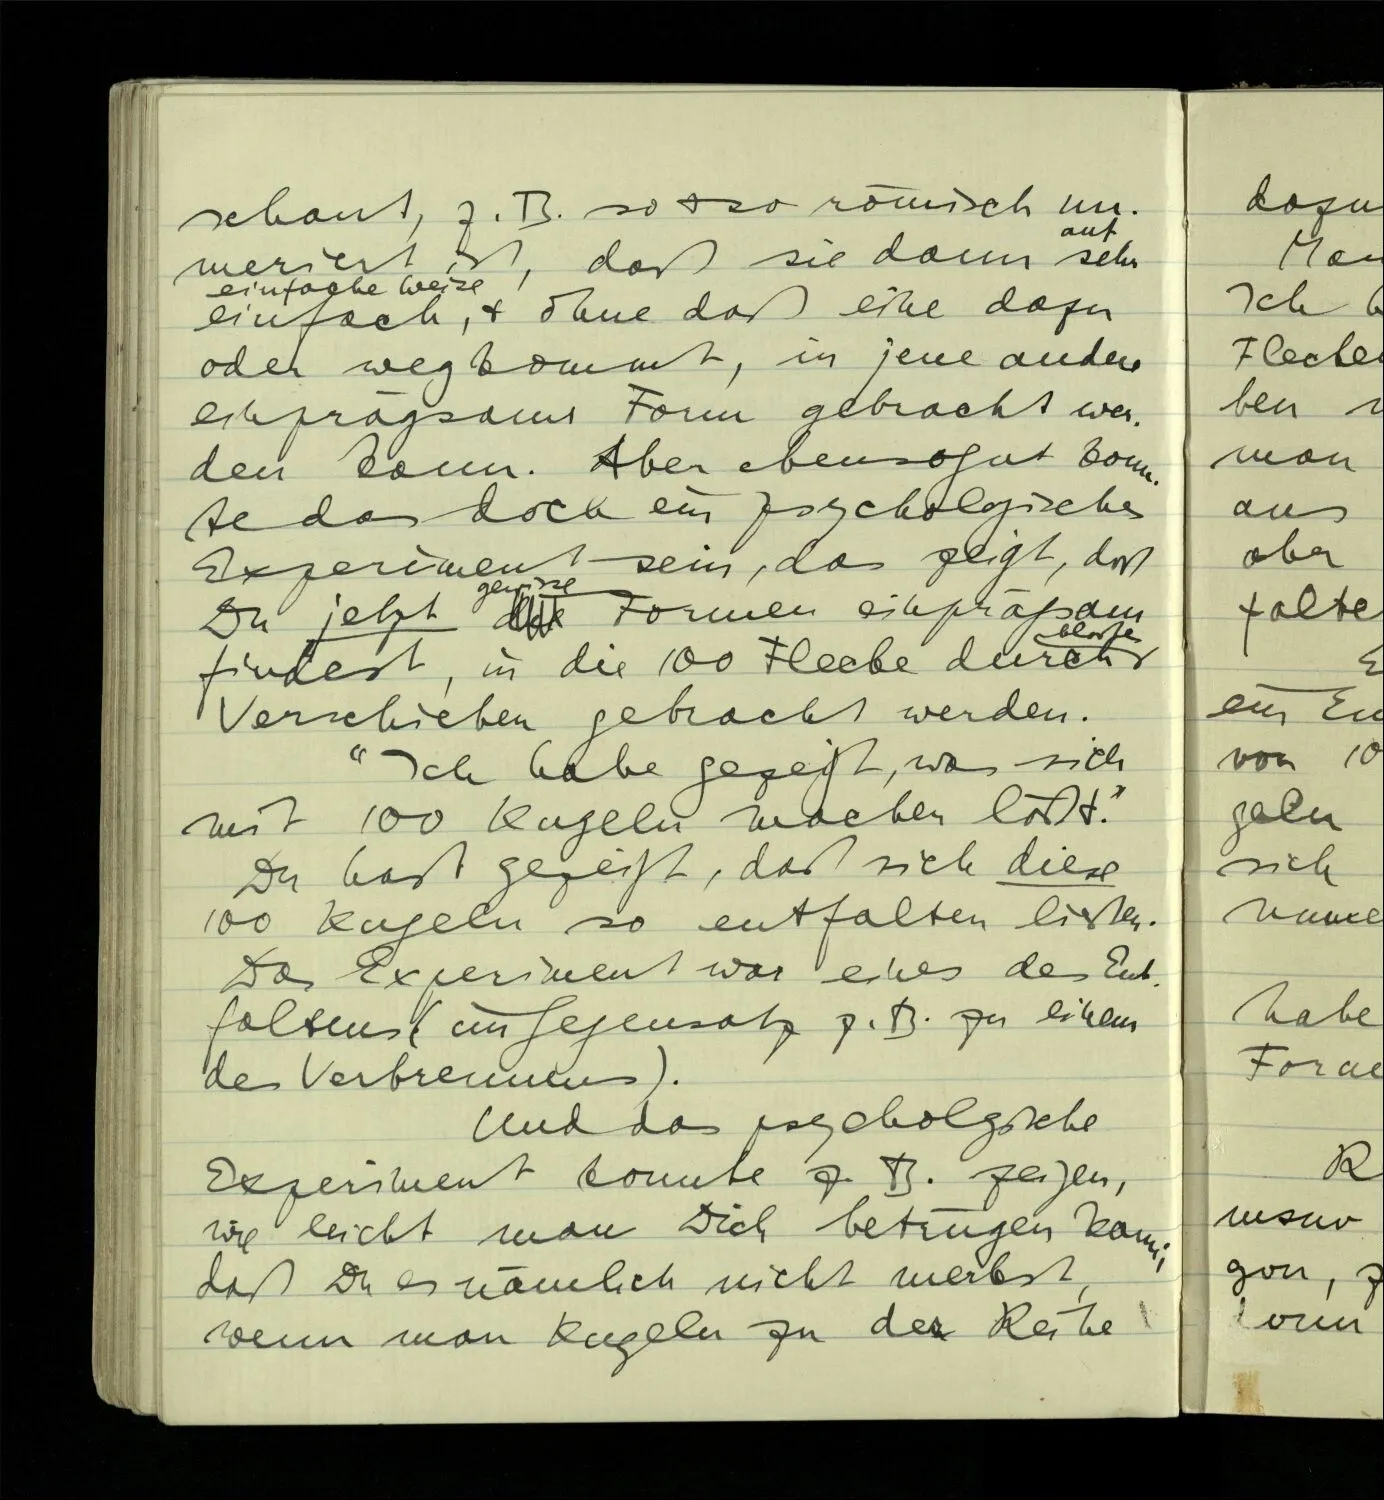 schaut, z.B. so + so römisch nu-
meriert ist, daß sie dann auf sehr
einfache Weise
einfach, + ohne daß eine dazu
oder wegkommt, in jene andere
einprägsame Form gebracht wer-
den kann. Aber ebensogut konn-
te das doch ein psychologisches
Experiment sein, das zeigt, daß
Du jetzt gewisse Formen einprägsam
findest, in die 100 Flecke durch bloßes
Verschieben gebracht werden.
“Ich habe gezeigt, was sich
mit 100 Kugeln machen läßt.”
Du hast gezeigt, daß sich diese
100 Kugeln so entfalten ließen.
Das Experiment war eines des Ent-
faltens (im Gegensatz z.B. zu einem
des Verbrennens).
Und das psycholgische
Experiment konnte z.B. zeigen,
wie leicht man Dich betrügen kann;
daß Du es nämlich nicht merkst,
wenn man Kugeln zu der Reihe
dazu
Ich
man
aus
aber
ein
von 10
geln
sich
habe